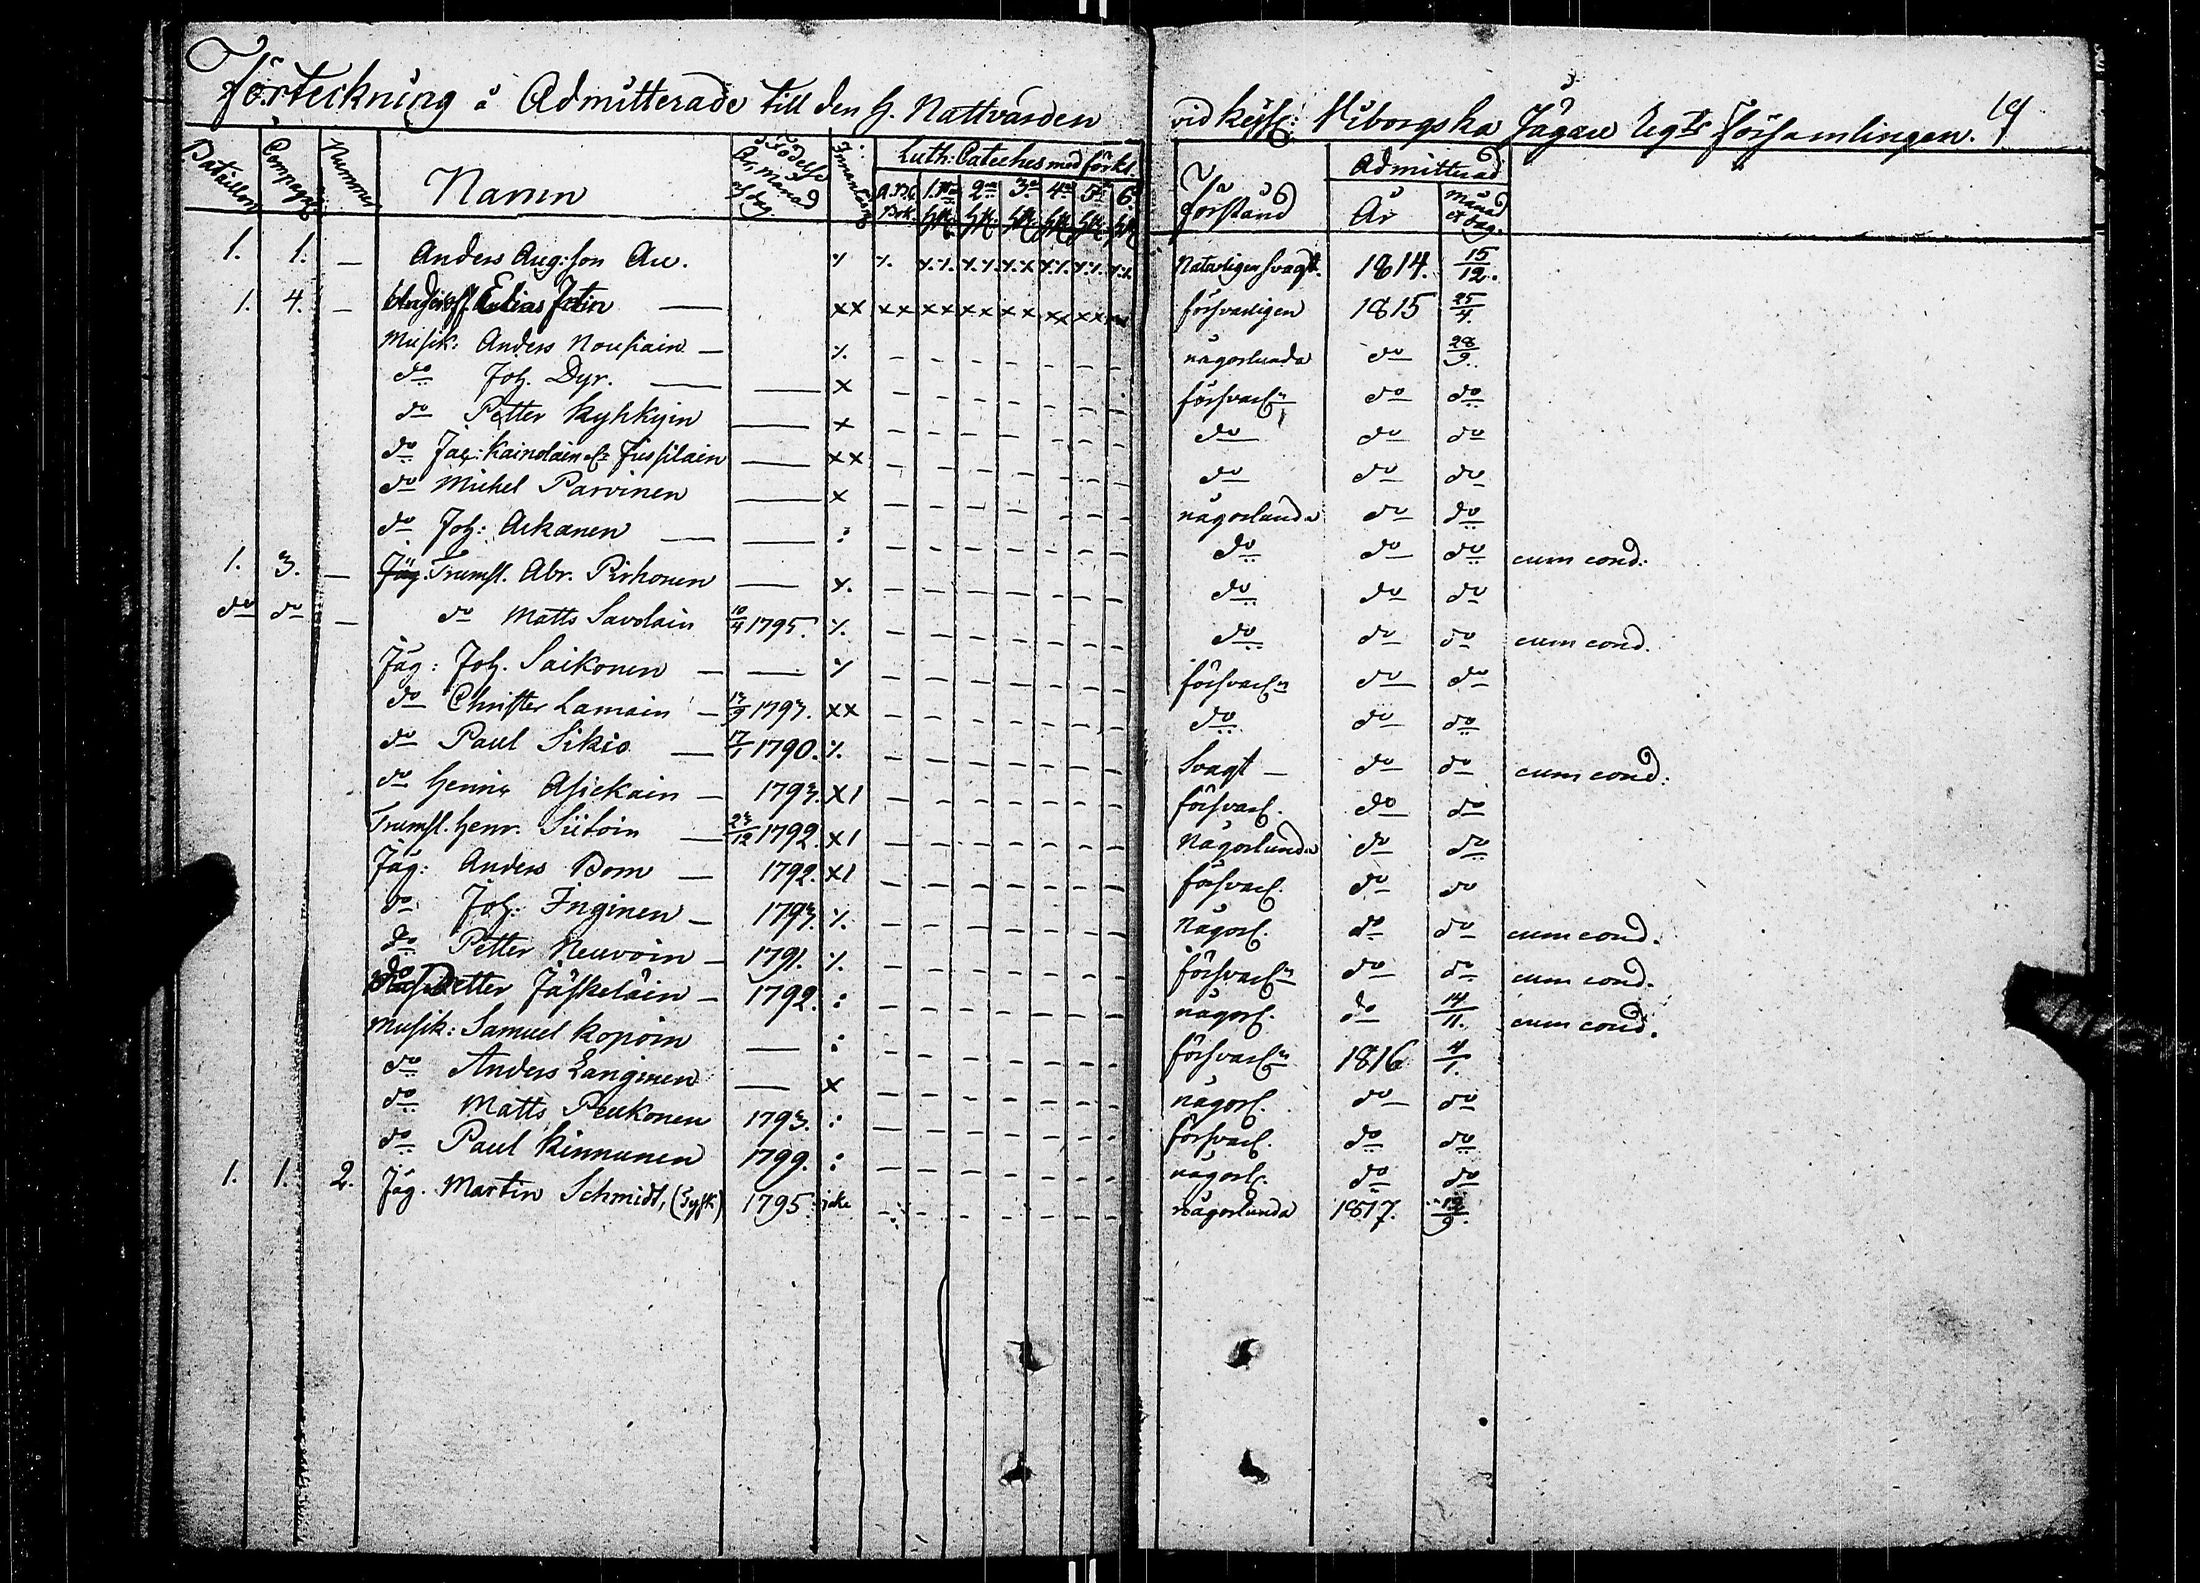 Förteckning å Admitterade till den H. Nattvarden vid Kejs: Wiborgska Jägare Reg:ts Församlingen. 19
Bataillon Compagni Nummer Namn Födelse År, Månad och dag. Innanläsning Luth: Cateches med förkl. Förstånd Admitterad
A.B.C. Bok. 1sta H.st. 2a H.st. 3e H.st. 4e H.st. 5e H.st. 6e H.st. År Månad och dag.
1. 1. — Anders Aug:son Au. Naturligen svagt. 1814. 15/12.
1. 4. — Elias — xx xx xx xx xx xx xx försvarligen 1815 25/4.
Musik: Anders Nousiain — någorlunda do 28/9.
do Joh. Dyr. — — x försvarl:n do do
do Petter Kyhkyin — x do do do
do Jac: Kainolain Jussilain — xx do do do
do Michel Parvinen — x någorlunda do do
do Joh: Aikanen — — : do do do cum cond:
1. 3. — Trumsl. Abr. Pirhonen — do do do
do do — do Matts Savolain 10/4 1795. do do do cum cond.
Jäg: Joh. Saikonen — — försvarl:n do do
do Christer Lamain — 13/9 1793. xx do do do
do Paul Sikiö — 17/1 1790. Svagt — do do cum cond:
do Henrik Asickain — 1793. x1 försvarl. do do
Trumsl. Henr. Siitoin — 23/12 1792. x1 Någorlunda do do
Jäg: Anders Bom — 1792. x1 försvarl. do do
do Joh: Inginen — 1793. Någorl. do do cum cond.
do Petter Neuvoin — 1791. försvarl:n do do cum cond.
do Petter Jäskeläin — 1792. : någorl. do 14/11. cum cond.
Musik: Samuel Kopoin — : försvarl:n 1816 4/1.
do Anders Langinen — x någorl. do do
do Matts Peukonen 1793. : försvarl. do do
do Paul Kinnunen 1799. : någorl. do do
1. 1. 2. Jäg. Martin Schmidt, (Tysk) 1795. icke någorlunda 1817. 13/9.